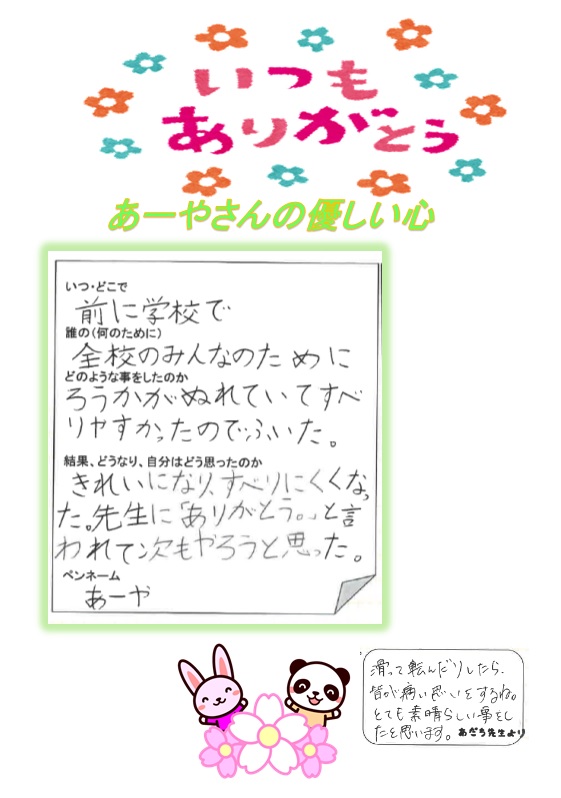 いつも
ありがとう
あーやさんの優しい心
いつ・どこで
前に学校で
誰の(何のために)
全校のみんなのために
どのような事をしたのか
ろうかがぬれていてすべ
りやすかったのでふいた。
結果、どうなり、自分はどう思ったのか
きれいになり、すべりにくくなっ
た。先生に「ありがとう。」と言
われて次もやろうと思った。
ペンネーム
あーや
滑って転んだりしたら、
皆が痛い思いをするね。
とても素晴らしい事をし
たと思います。あだち先生より